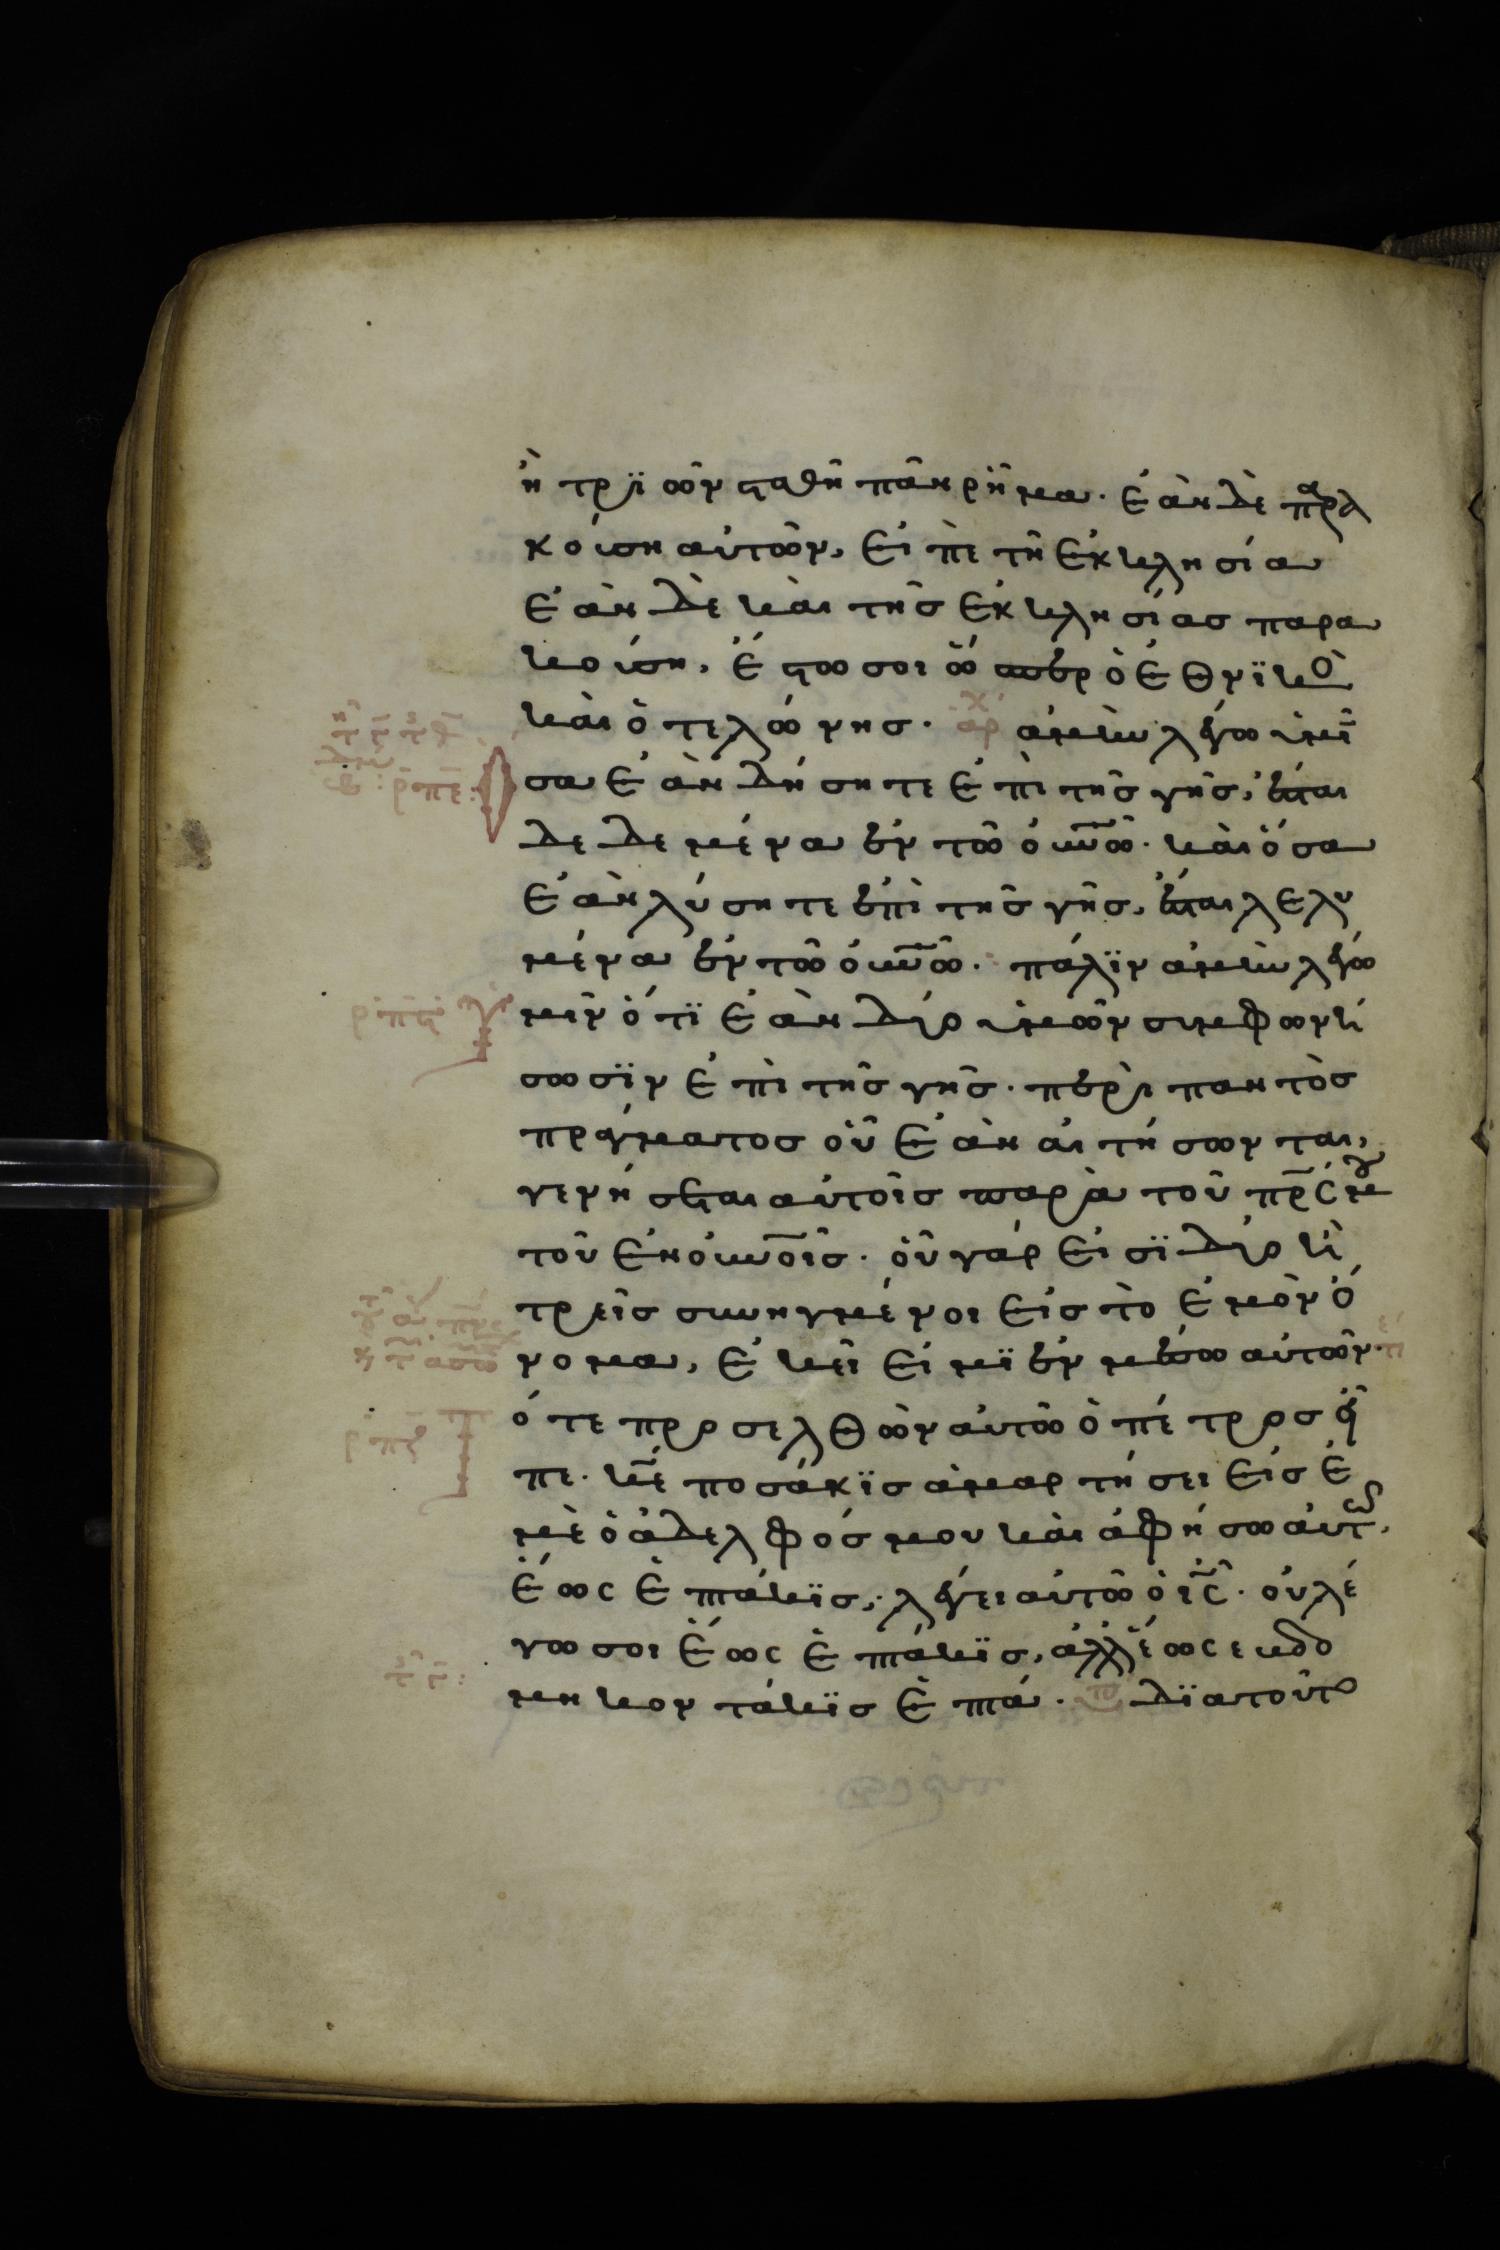 ἢ τριῶν σταθῆ πᾶν ρῆμα· ἐὰν δὲ παρα
κούση αὐτῶν, εἰπὲ τῆ ἐκκλησία
ἐὰν δὲ καὶ τῆς ἐκκλησίας παρα
κούση, ἔστω σοι ὥσπερ ὁ ἐθνϊκὸ
καὶ ὁ τελώνης· αρχ ἀμὴν λέγω ὑμῖ
σα ἐὰν δήσητε ἐπὶ τῆς γῆς, ἔσται
δεδεμένα ἐν τῶ ὀυνῶ· καὶ ὅσα
ἐὰν λύσητε ἐπὶ τῆς γῆς, ἔσται λελυ
μένα ἐν τῶ ὀυνῶ· πάλϊν ἀμὴν λέγω
ρπς
μῖν ὅτϊ ἐὰν δύο ὑμῶν συμφωνή
σωσϊν ἐπὶ τῆς γῆς· περὶ παντὸς
πράγματος οὗ ἐὰν αἰτήσωνται,
γενήσεται αὐτοῖς παρὰ τοῦ πρς μου
τοῦ ἐν ὀυνοῖς· οὗ γάρ εἰσϊ δύο ἢ
τρεῖς συνηγμένοι εἰς τὸ ἐμὸν ὄ
νομα, ἐκεῖ εἰμϊ ἐν μέσω αὐτῶν·
ρπζ
ότε προσελθὼν αὐτῶ ὁ πέτρος εἶ
πε· κε ποσάκϊς ἁμαρτήσει εἰς ἐ
μὲ ὁ ἀδελφός μου καὶ ἀφήσω αὐτῶ,
ἕως ἑπτάκϊς; λέγει αὐτῶ ὁ ις· οὐ λέ
γω σοι ἕως ἑπτάκϊς, ἀλλ' ἕως εβδο
μηκοντάκϊς ἑπτά· δϊατοῦτο